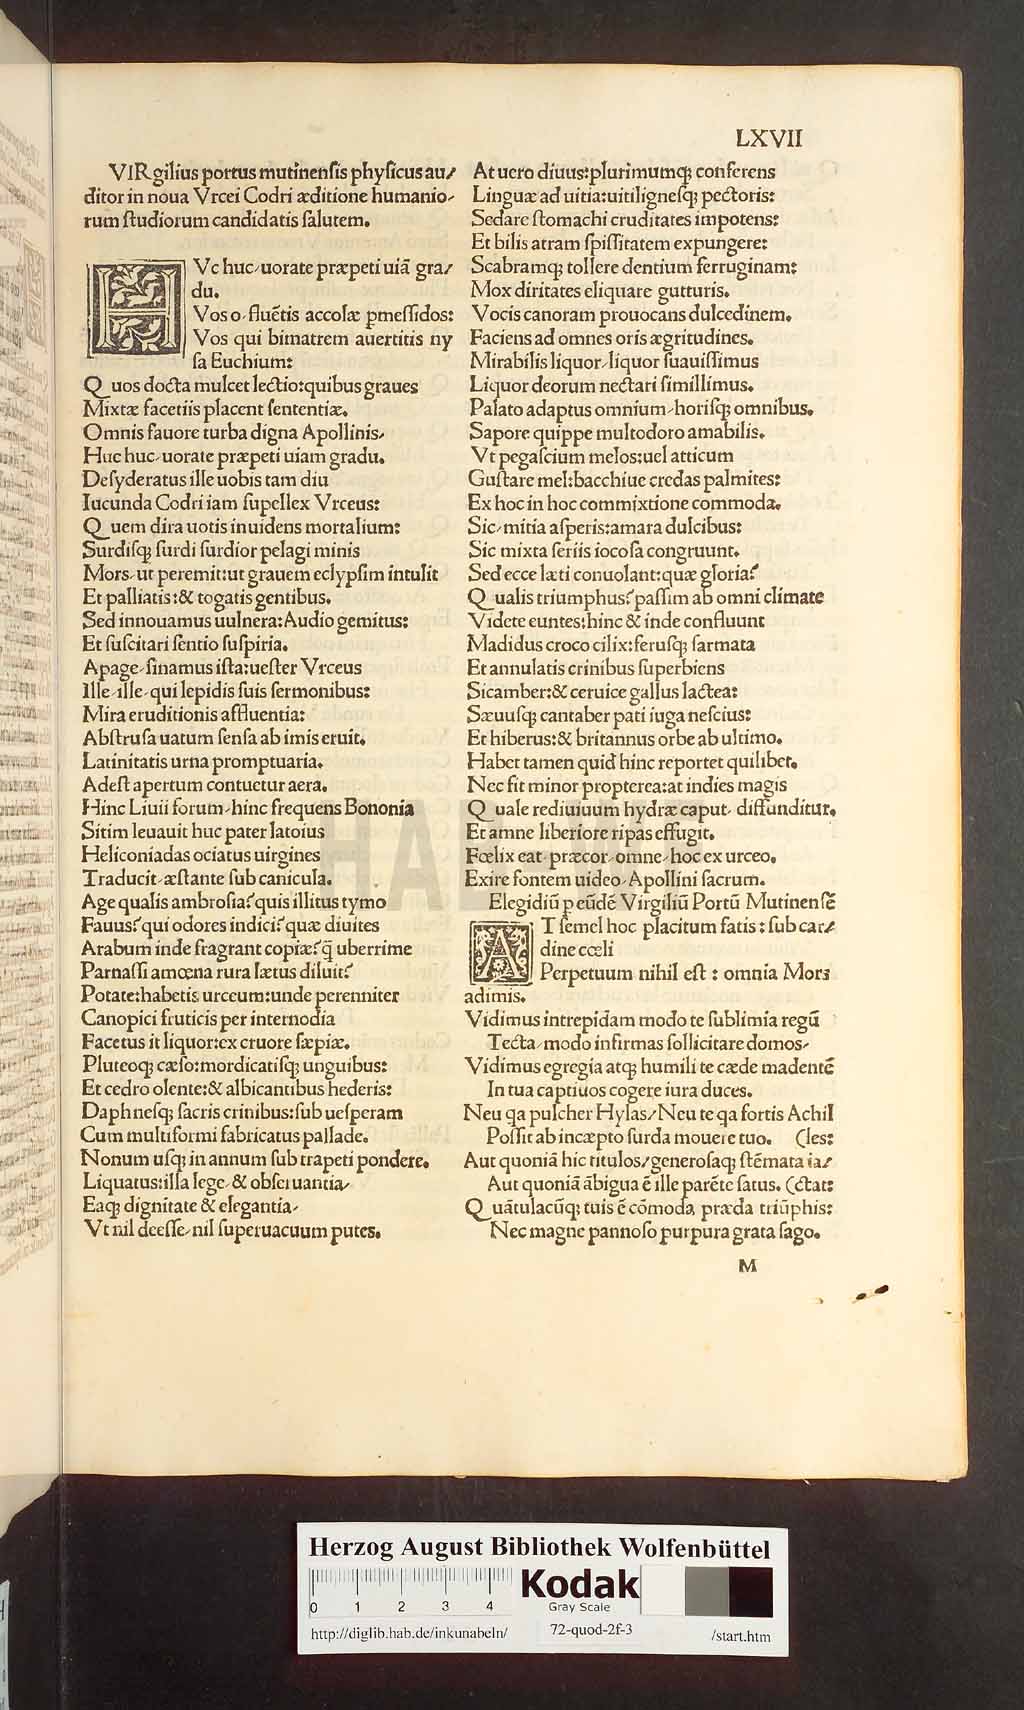 LXVII
VIRgilius portus mutinenſis phyſicus au/
ditor in noua Vrcei Codri æditione humanio/
rum ſtudiorum candidatis ſalutem.
HVc huc/uorate præpeti uiã gra/
du.
Vos o/fluẽtis accolæ pmeſſidos:
Vos qui bimatrem auertitis ny
ſa Euchium:
Quos docta mulcet lectio:quibus graues
Mixtæ facetiis placent ſententiæ.
Omnis fauore turba digna Apollinis/
Huc huc/uorate præpeti uiam gradu.
Deſyderatus ille uobis tam diu
Iucunda Codri iam ſupellex Vrceus:
Quem dira uotis inuidens mortalium:
Surdiſq; ſurdi ſurdior pelagi minis
Mors/ut peremit:ut grauem eclypſim intulit
Et palliatis:& togatis gentibus.
Sed innouamus uulnera:Audio gemitus:
Et ſuſcitari ſentio ſuſpiria.
Apage/ſinamus iſta:ueſter Vrceus
Ille/ille/qui lepidis ſuis ſermonibus:
Mira eruditionis affluentia:
Abſtruſa uatum ſenſa ab imis eruit.
Latinitatis urna promptuaria.
Adeſt apertum contuetur aera.
Hinc Liuii forum/hinc frequens Bononia
Sitim leuauit huc pater latoius
Heliconiadas ociatus uirgines
Traducit/æſtante ſub canicula.
Age qualis ambroſia? quis illitus tymo
Fauus? qui odores indici? quæ diuites
Arabum inde fragrant copiæ? q̃ uberrime
Parnaſſi amœna rura lætus diluit?
Potate:habetis urceum:unde perenniter
Canopici fruticis per internodia
Facetus it liquor:ex cruore ſæpiæ.
Pluteoq; cæſo:mordicatiſq; unguibus:
Et cedro olente:& albicantibus hederis:
Daphneſq; ſacris crinibus:ſub ueſperam
Cum multiformi fabricatus pallade.
Nonum uſq; in annum ſub trapeti pondere.
Liquatus:illa lege/& obſeruantia/
Eaq; dignitate & elegantia/
Vt nil deeſſe/nil ſuperuacuum putes.
At uero diuus:plurimumq; conferens
Linguæ ad uitia:uitiligneſq; pectoris:
Sedare ſtomachi cruditates impotens:
Et bilis atram ſpiſſitatem expungere:
Scabramq; tollere dentium ferruginam:
Mox diritates eliquare gutturis.
Vocis canoram prouocans dulcedinem.
Faciens ad omnes oris ægritudines.
Mirabilis liquor/liquor ſuauiſſimus
Liquor deorum nectari ſimillimus.
Palato adaptus omnium/horiſq; omnibus.
Sapore quippe multodoro amabilis.
Vt pegaſcium melos:uel atticum
Guſtare mel:bacchiue credas palmites:
Ex hoc in hoc commixtione commoda.
Sic/mitia aſperis:amara dulcibus:
Sic mixta ſeriis iocoſa congruunt.
Sed ecce læti conuolant:quæ gloria?
Qualis triumphus? paſſim ab omni climate
Videte euntes:hinc & inde confluunt
Madidus croco cilix:feruſq; ſarmata
Et annulatis crinibus ſuperbiens
Sicamber:& ceruice gallus lactea:
Sæuuſq; cantaber pati iuga neſcius:
Et hiberus:& britannus orbe ab ultimo.
Habet tamen quid hinc reportet quilibet.
Nec fit minor propterea:at indies magis
Quale rediuiuum hydræ caput/diffunditur.
Et amne liberiore ripas effugit.
Fœlix eat/præcor/omne/hoc ex urceo.
Exire fontem uideo/Apollini ſacrum.
Elegidiũ p eũdẽ Virgiliũ Portũ Mutinenſẽ
AT ſemel hoc placitum fatis : ſub car/
dine cœli
Perpetuum nihil eſt : omnia Mors
adimis.
Vidimus intrepidam modo te ſublimia regũ
Tecta/modo infirmas ſollicitare domos/
Vidimus egregia atq; humili te cæde madentẽ
In tua captiuos cogere iura duces.
Neu qa pulcher Hylas/Neu te qa fortis Achil
Poſſit ab incæpto ſurda mouere tuo. (les:
Aut quoniã hic titulos/generoſaq; ſtẽmata ia/
Aut quoniã ãbigua ẽ ille parẽte ſatus. (ctat:
Quãtulacũq; tuis ẽ cõmoda præda triũphis:
Nec magne pannoſo purpura grata ſago.
M
HAB-WF
Herzog August Bibliothek Wolfenbüttel
0 1 2 3 4
Kodak
Gray Scale
http://diglib.hab.de/inkunabeln/
72-quod-2f-3
/start.htm